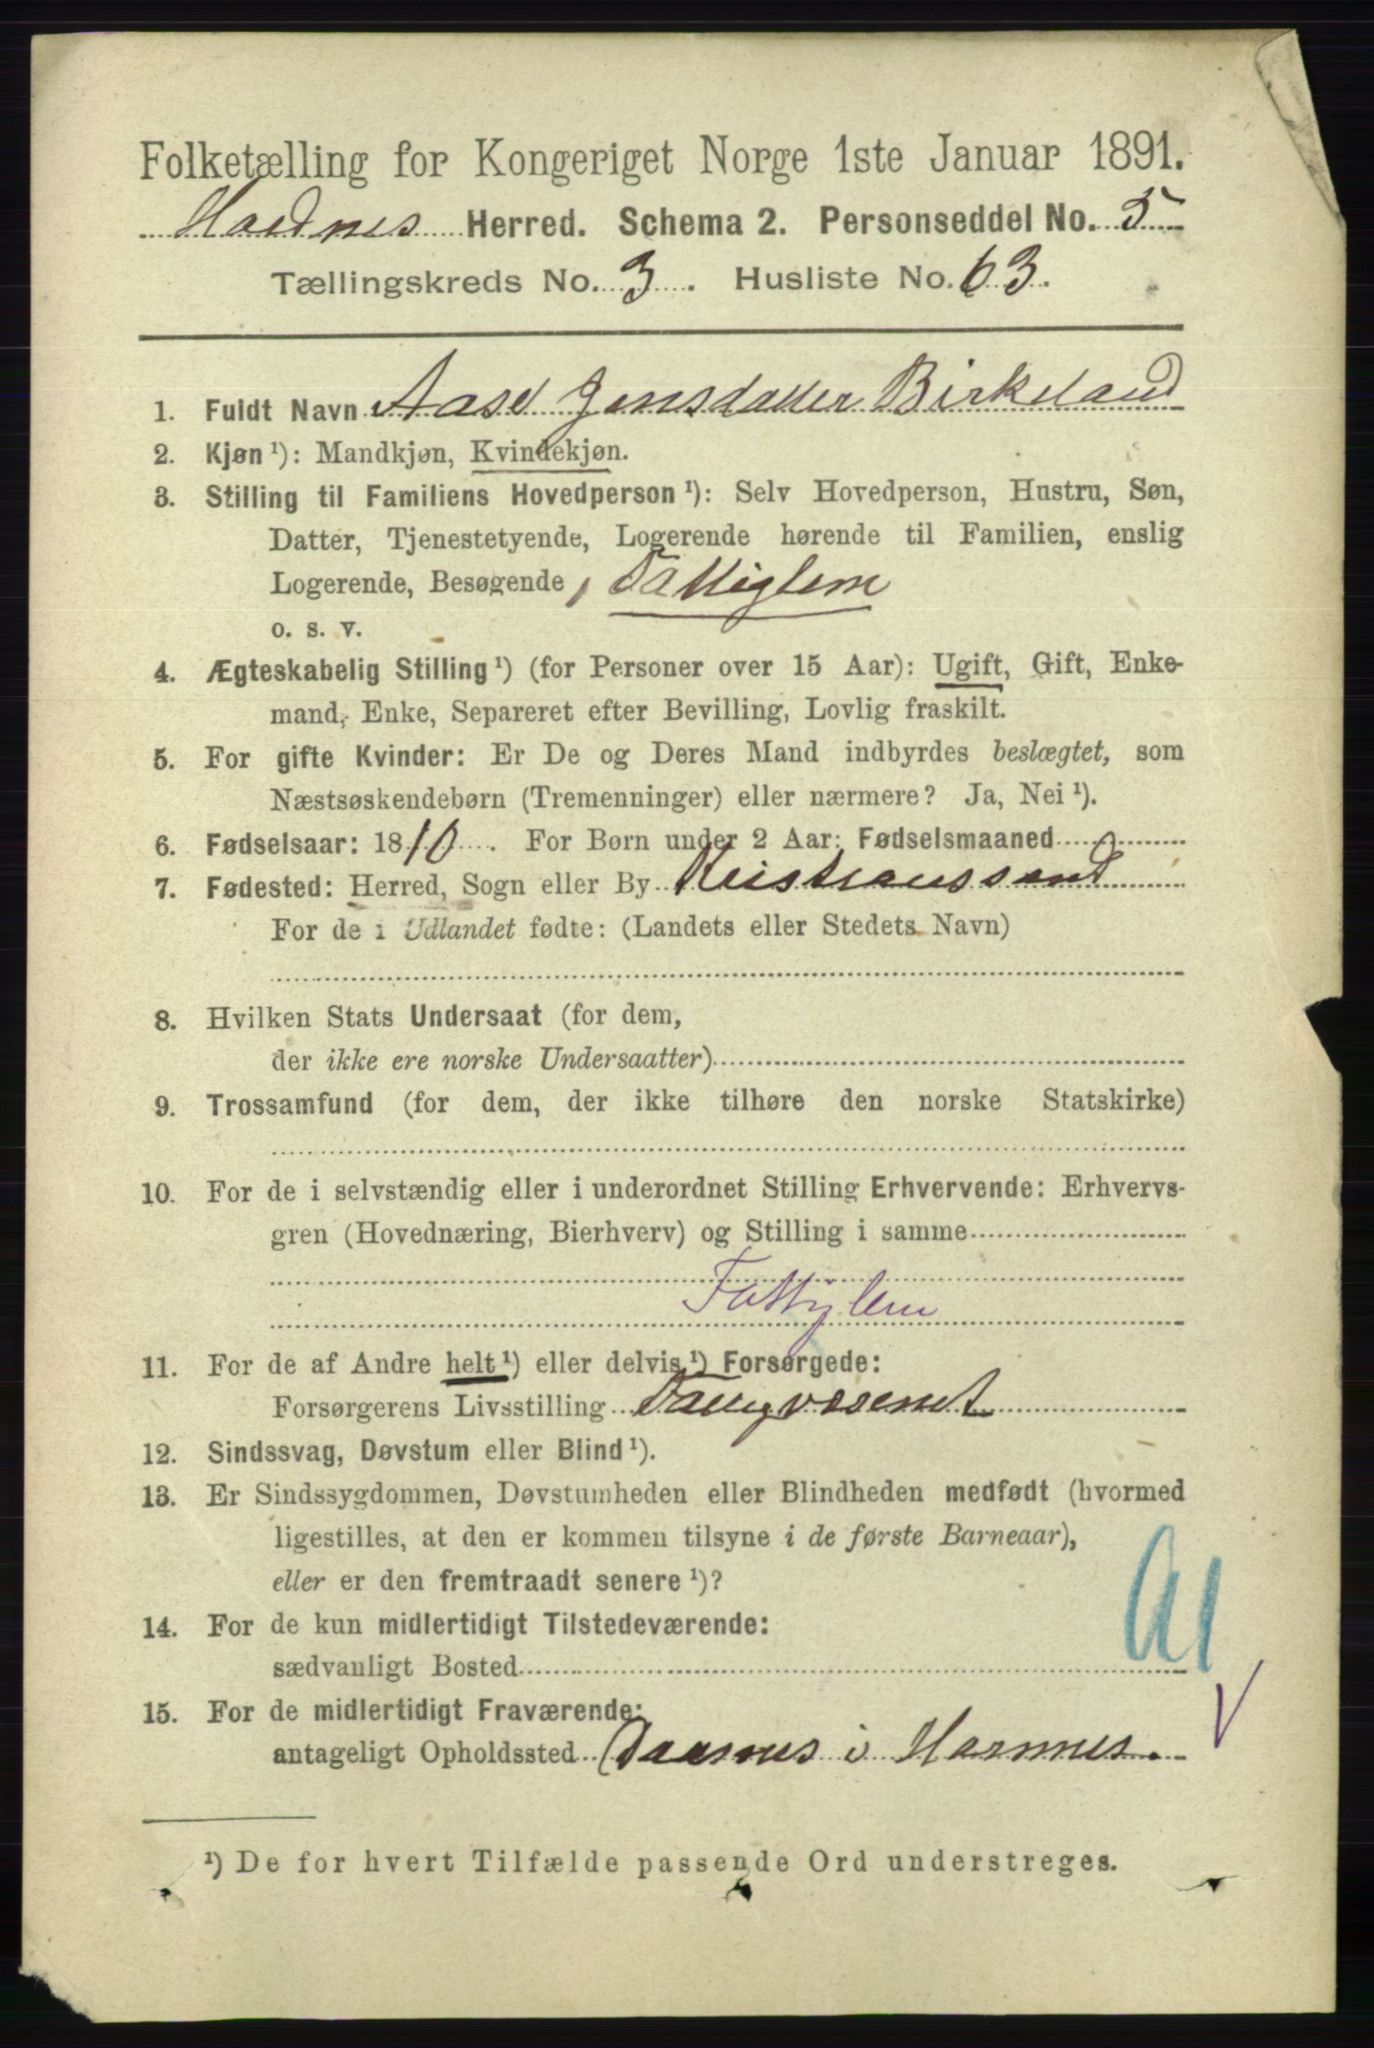 Folketælling for Kongeriget Norge 1ste Januar 1891.
Herred. Schema 2. Personseddel No. 5
Tællingskreds No. 3. Husliste No. 63.
1. Fuldt Navn Aase Jensdatter Birkeland
2. Kjøn ¹): Mandkjøn, Kvindekjøn.
3. Stilling til Familiens Hovedperson ¹): Selv Hovedperson, Hustru, Søn,
Datter, Tjenestetyende, Logerende hørende til Familien, enslig
Logerende, Besøgende, Fattiglem
o. s. v.
4. Ægteskabelig Stilling ¹) (for Personer over 15 Aar): Ugift, Gift, Enke-
mand, Enke, Separeret efter Bevilling, Lovlig fraskilt.
5. For gifte Kvinder: Er De og Deres Mand indbyrdes beslægtet, som
Næstsøskendebørn (Tremenninger) eller nærmere? Ja, Nei ¹).
6. Fødselsaar: 1810. For Børn under 2 Aar: Fødselsmaaned
7. Fødested: Herred, Sogn eller By Kristianssand
For de i Udlandet fødte: (Landets eller Stedets Navn)
8. Hvilken Stats Undersaat (for dem,
der ikke ere norske Undersaatter)
9. Trossamfund (for dem, der ikke tilhøre den norske Statskirke)
10. For de i selvstændig eller i underordnet Stilling Erhvervende: Erhvervs-
gren (Hovednæring, Bierhverv) og Stilling i samme
Fattiglem
11. For de af Andre helt ¹) eller delvis ¹) Forsørgede:
Forsørgerens Livsstilling Fattigvæsenet
12. Sindssvag, Døvstum eller Blind ¹).
13. Er Sindssygdommen, Døvstumheden eller Blindheden medfødt (hvormed
ligestilles, at den er kommen tilsyne i de første Barneaar),
eller er den fremtraadt senere ¹)?
14. For de kun midlertidigt Tilstedeværende:
sædvanligt Bosted
15. For de midlertidigt Fraværende:
antageligt Opholdssted i
¹) De for hvert Tilfælde passende Ord understreges.